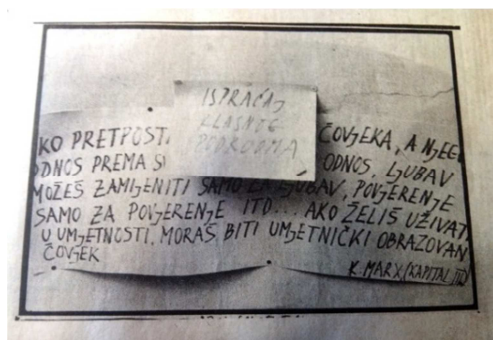 ISPRAĆAJ
KLASNOG
KO PRETPOST. ČOVJEKA, A NJEG
ODNOS PREMA S ODNOS, LJUBAV
MOŽEŠ ZAMIJENITI SAMO ZA LJUBAV, POVJERENJE
SAMO ZA POVJERENJE ITD... AKO ŽELIŠ UŽIVAT
U UMJETNOSTI, MORAŠ BITI UMJETNIČKI OBRAZOVAN
ČOVJEK
K. MARX (KAPITAL III)